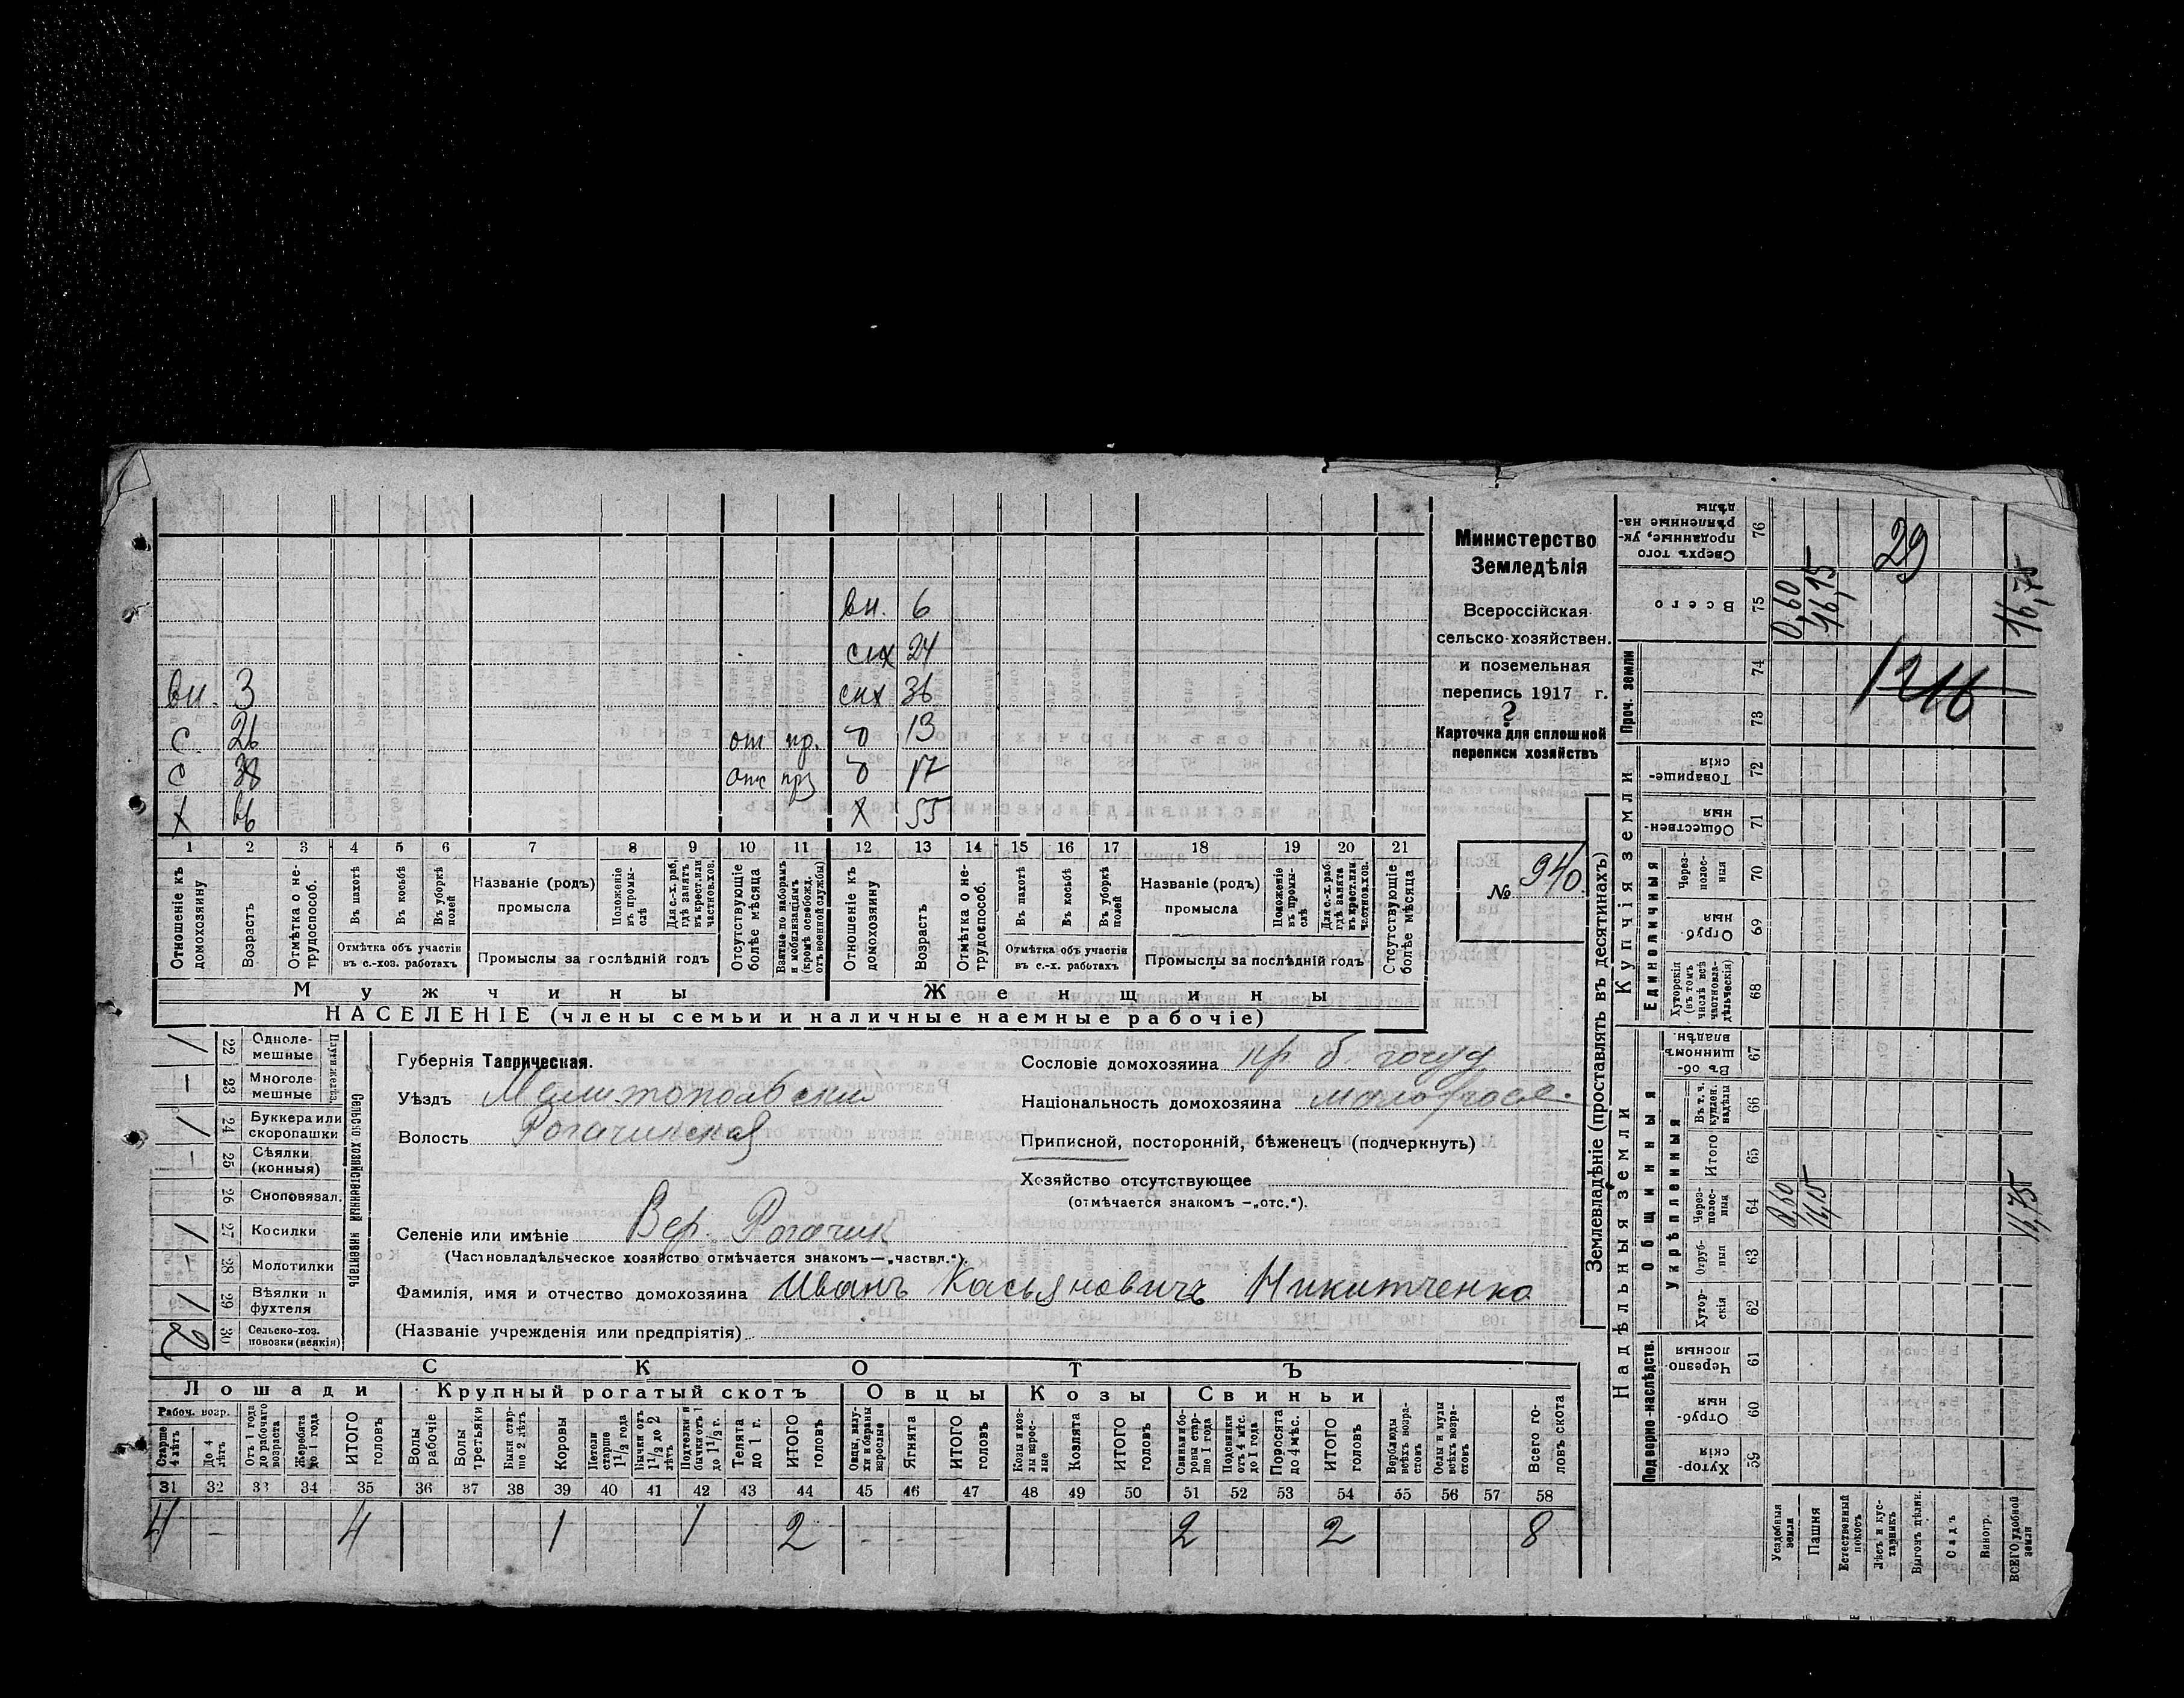 вн. 6
снх 24
вн. 3 снх 36
с. 26 от пр. д 13
с 38 отс прз д 17
х 66 х 55
1 2 3 4 5 6 7 8 9 10 11 12 13 14 15 16 17 18 19 20 21
Отношеніе къ домохозяину
Возрастъ
Отмѣтка о не-трудоспособ.
Въ пахотѣ
Въ косьбѣ
Въ уборкѣ полей
Отмѣтка объ участіи въ с.-хоз. работахъ
Названіе (родъ) промысла
Положеніе въ промы-слѣ
Для с.-х. раб. гдѣ занятъ въ крест. или частнов. хоз.
Промыслы за послѣдній годъ
Отсутствующіе болѣе мѣсяца
Взятые по наборамъ и мобилизаціямъ (кромѣ освобожд. отъ военной службы)
Отношеніе къ домохозяину
Возрастъ
Отмѣтка о не-трудоспособ.
Въ пахотѣ
Въ косьбѣ
Въ уборкѣ полей
Отмѣтка объ участіи въ с.-х. работахъ
Названіе (родъ) промысла
Положеніе въ промы-слѣ
Для с.-х. раб. гдѣ занята въ крест. или частнов. хоз.
Промыслы за послѣдній годъ
Отсутствующіе болѣе мѣсяца
Мужчины Женщины
НАСЕЛЕНІЕ (члены семьи и наличные наемные рабочіе)
Министерство
Земледѣлія
Всероссійская
сельско-хозяйствен.
и поземельная
перепись 1917 г.
?
Карточка для сплошной
переписи хозяйствъ
№ 940
Сельско-хозяйственный инвентарь
Плуги желез.
/ 22 Одноле-мешные
– 23 Многоле-мешные
/ 24 Буккера или скоропашки
– 25 Сѣялки (конныя)
26 Сноповязал.
/ 27 Косилки
– 28 Молотилки
/ 29 Вѣялки и фухтеля
2 30 Сельско-хоз. повозки (всякія)
Губернія Таврическая.
Уѣздъ Мелитопольский
Волость Рогачинская
Селеніе или имѣніе Вер. Рогачик
(Частновладѣльческое хозяйство отмѣчается знакомъ—„частвл.“).
Фамилія, имя и отчество домохозяина Иванъ Касьяновичъ Никитченко
(Названіе учрежденія или предпріятія)
Сословіе домохозяина кр б. госуд
Національность домохозяина малоросс.
Приписной, посторонній, бѣженецъ (подчеркнуть)
Хозяйство отсутствующее
(отмѣчается знакомъ —„отс.“).
СКОТЪ
Лошади Крупный рогатый скотъ Овцы Козы Свиньи
Рабоч. возр.
Старше 4 лѣтъ
До 4 лѣтъ
Отъ 1 года до рабочаго возраста
Жеребята до 1 года
ИТОГО головъ
Волы рабочіе
Волы третьяки
Быки стар-ше 2 лѣтъ
Коровы
Нетели старше 1 1/2 года
Бычки отъ 1 1/2 до 2 лѣтъ
Подтелки и бычки отъ 1 до 1 1/2 г.
Телята до 1 г.
ИТОГО головъ
Овцы, валу-хи и бараны взрослые
Ягнята
ИТОГО головъ
Козы и коз-лы взрос-лые
Козлята
ИТОГО головъ
Свиньи и бо-ровы стар-ше 1 года
Подсвинки отъ 4 мѣс. до 1 года
Поросята до 4 мѣс.
ИТОГО головъ
Верблюды всѣхъ возра-стовъ
Ослы и мулы всѣхъ возра-стовъ
Всего го-ловъ скота
31 32 33 34 35 36 37 38 39 40 41 42 43 44 45 46 47 48 49 50 51 52 53 54 55 56 57 58
4 – 4 1 1 2 - - - 2 2 8
Землевладѣніе (проставлять въ десятинахъ)
Надѣльныя земли
Купчія земли
Проч. земли
Подворно-наслѣдств.
Общинныя
Укрѣпленныя
Единоличныя
Хутор-скія 59
Отруб-ныя 60
Черезпо-лосныя 61
Хутор-скія 62
Отруб-ныя 63
Через-полос-ныя 64
Итого 65
Въ т. ч. куплен. надѣлы 66
Въ об-щинномъ владѣн. 67
Хуторскія (въ томъ числѣ всѣ частновла-дѣльческія) 68
Отруб-ныя 69
Через-полос-ныя 70
Обществен-ныя 71
Товарище-скія 72
73
74
Всего 75
Сверхъ того проданные, ук-рѣпленные на-дѣлы 76
0,60 16,15 16,75
0,60 16,15 16,75
29
1216
Усадебныя земли
Пашня
Естественный покосъ
Лѣсъ и кус-тарникъ
Выгонъ цѣлин.
Садъ
Виногр.
ВСЕГО удобной земли